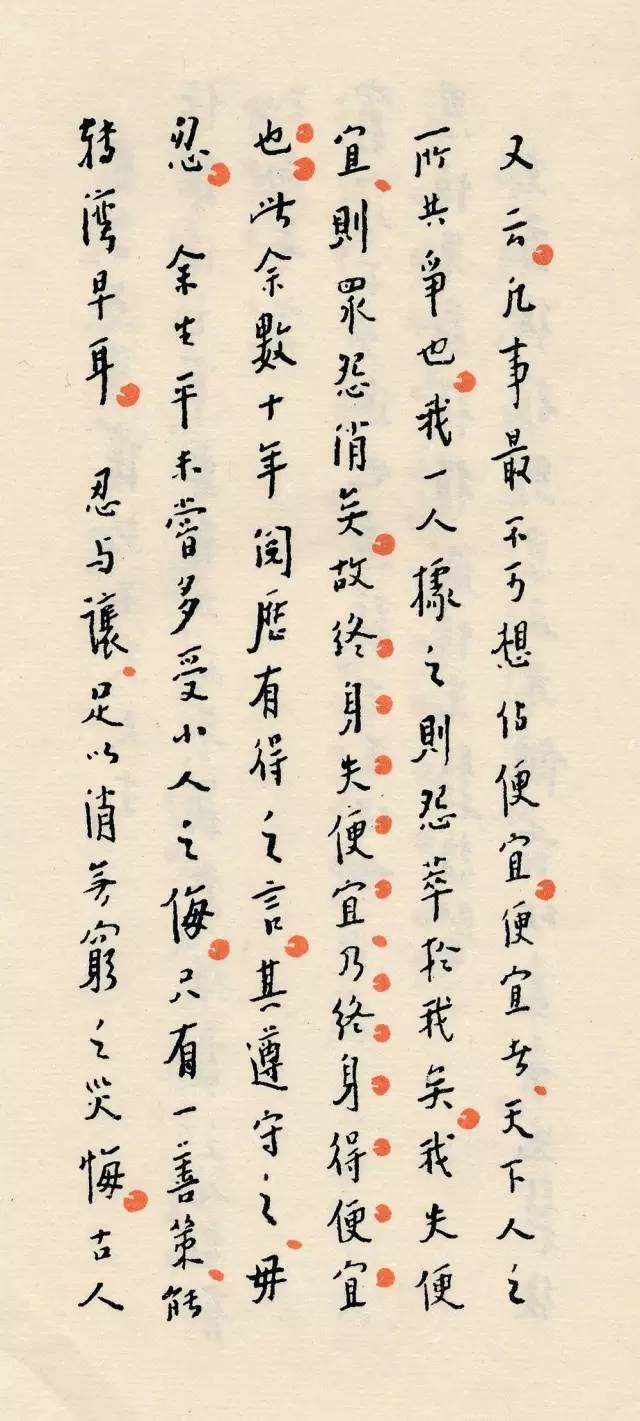 又云凡事最不可想佔便宜便宜者天下人之
所共爭也我一人據之則怨萃於我矣我失便
宜則眾怨消矣故終身失便宜乃終身得便宜
也此余數十年閱歷有得之言其遵守之毋
忽 余生平未嘗多受小人之侮只有一善策能
轉灣早耳 忍与讓足以消無窮之災悔古人